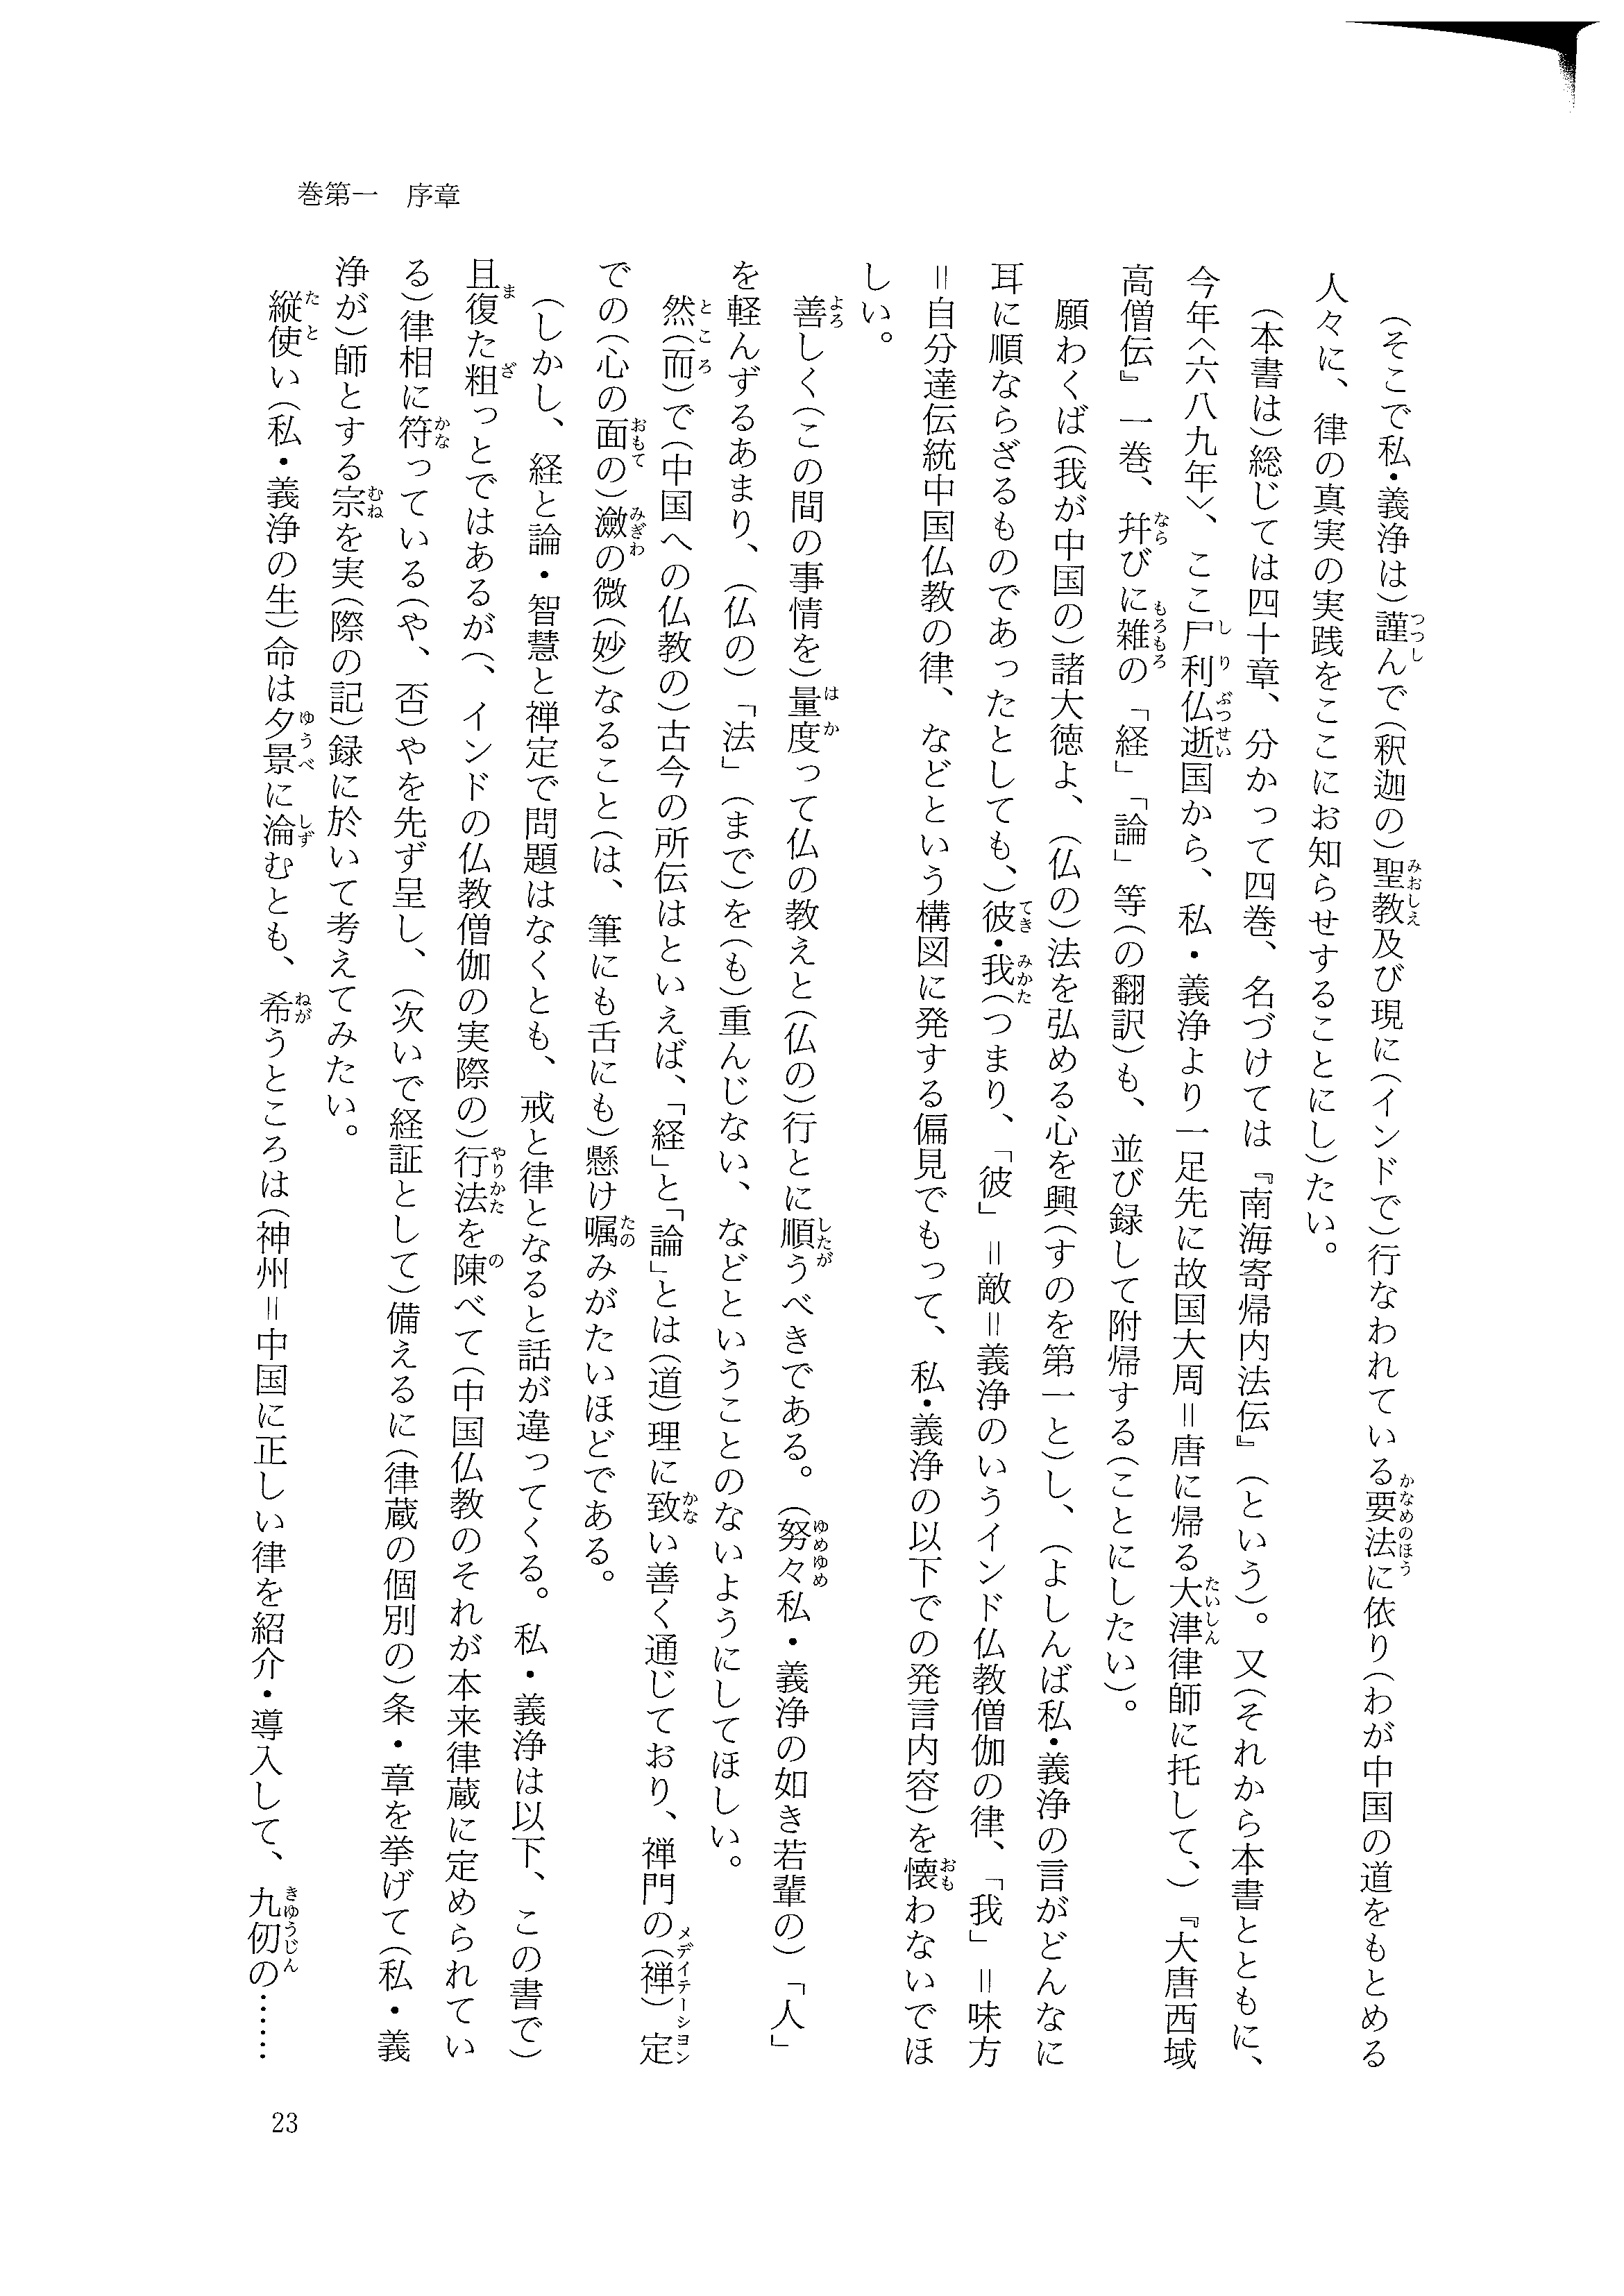 巻第一　序章
（そこで私・義浄は）謹んで（釈迦の）聖教及び現に（インドで）行なわれている要法に依り（わが中国の道をもとめる
人々に、律の真実の実践をここにお知らせすることにし）たい。
（本書は）総じては四十章、分かって四巻、名づけては『南海寄帰内法伝』（という）。又（それから本書とともに、
今年〈六八九年〉、ここ尸利仏逝国から、私・義浄より一足先に故国大周＝唐に帰る大津律師に托して、）『大唐西域
高僧伝』一巻、幷びに雑の「経」「論」等（の翻訳）も、並び録して附帰する（ことにしたい）。
願わくば（我が中国の）諸大徳よ、（仏の）法を弘める心を興（すのを第一と）し、（よしんば私・義浄の言がどんなに
耳に順ならざるものであったとしても、）彼・我（つまり、「彼」＝敵＝義浄のいうインド仏教僧伽の律、「我」＝味方
＝自分達伝統中国仏教の律、などという構図に発する偏見でもって、私・義浄の以下での発言内容）を懐わないでほ
しい。
善しく（この間の事情を）量度って仏の教えと（仏の）行とに順うべきである。（努々私・義浄の如き若輩の）「人」
を軽んずるあまり、（仏の）「法」（まで）を（も）重んじない、などということのないようにしてほしい。
然（而）で（中国への仏教の）古今の所伝はといえば、「経」と「論」とは（道）理に致い善く通じており、禅門の（禅）定
での（心の面の）瀲の微（妙）なること（は、筆にも舌にも）懸け嘱みがたいほどである。
（しかし、経と論・智慧と禅定で問題はなくとも、戒と律となると話が違ってくる。私・義浄は以下、この書で）
且復た粗っとではあるが（、インドの仏教僧伽の実際の）行法を陳べて（中国仏教のそれが本来律蔵に定められてい
る）律相に符っている（や、否）やを先ず呈し、（次いで経証として）備えるに（律蔵の個別の）条・章を挙げて（私・義
浄が）師とする宗を実（際の記）録に於いて考えてみたい。
縦使い（私・義浄の生）命は夕景に淪むとも、希うところは（神州＝中国に正しい律を紹介・導入して、九仞の……
23